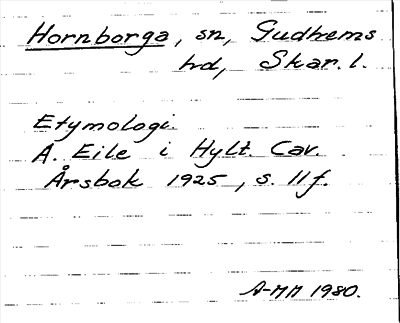 Hornborga, sn, Gudhems
hd, Skar. l.
Etymologi.
A. Eile i Hylt. Cav.
Årsbok 1925, s. 11 f.
A-MM 1980.